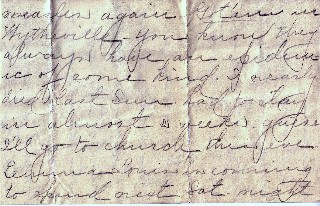 again
Wytheville you know they
always have an epidem
ic of some kind. I nearly
died last Sun had to stay
in almost 2 weeks, guess
I'll go to church this eve
Emma is coming
to spend next Sat night